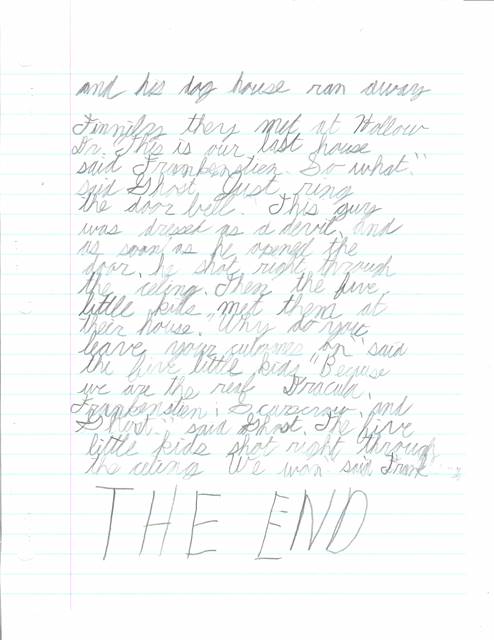 and his dog house ran away
Finnilzy they met at Hollow
Dr. "This is our last house
said Frankenstien. So what."
said Ghost Just ring
the door bell." This guy
was dressed as a devil, and
as soon as he opened the
door, he shot right through
the celing. Then the five
little kids met them at
their house. "Why do you
leave your cutumes on" said
the five little kids "Because
we are the real Dracula,
Frankenstien, Scarecrow, and
Ghost." said Ghost. The five
little kids shot right through
the celing We won said Frank
THE END